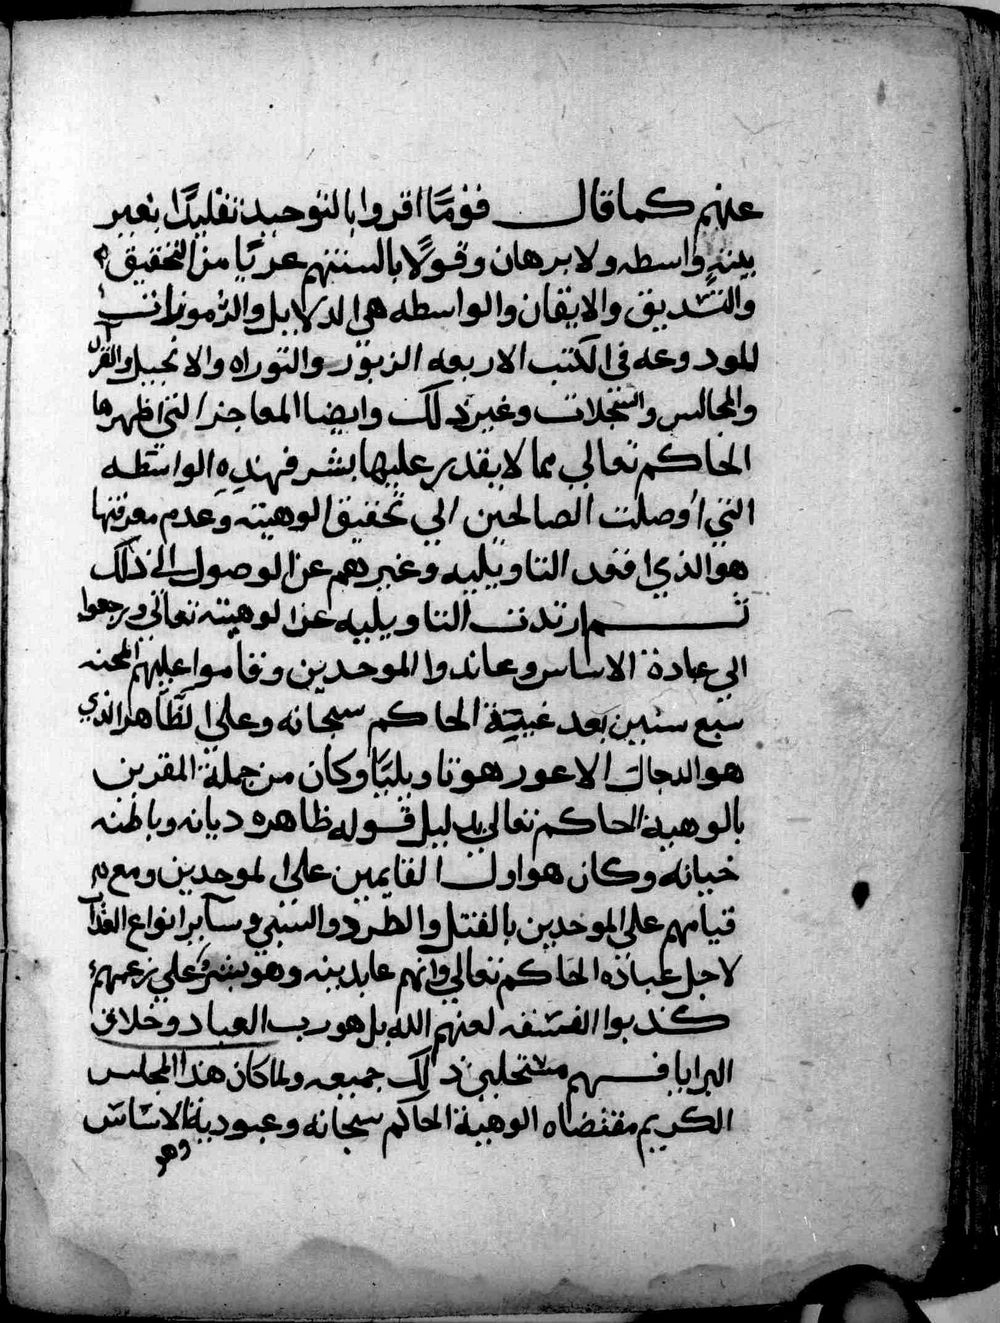 عنهم كما قال فقومًا اقروا بالتوحيد تقليدًا بغير
بينةٍ واسطه ولا برهان وقولًا بالسنتهم عريًا من التحقيق
والتصديق والايقان والواسطه هي الدلايل والرموزات
المودوعه في الكتب الاربعه الزبور والتوراه والانجيل والقران
والمجالس والسجلات وغير ذلك وايضا المعاجز التي اظهرها
الحاكم تعالي مما لا يقدر عليها بشر فهذه الواسطه
التي اوصلت الصالحين الي تحقيق الوهيته وعدم معرفتها
هو الذي اقعد التاويليه وغيرهم عن الوصول الى ذلك
ثم ارتدت التاويليه عن الوهيته تعالي ورجعوا
الي عبادة الاساس وعاندوا الموحدين وقاموا عليهم المحنه
سبع سنين بعد غيبة الحاكم سبحانه وعلي الظاهر الذي
هو الدجال الاعور هو تاويليًا وكان من جملة المقرين
بالوهية الحاكم تعالي بدليل قوله ظاهره ديانه وباطنه
خيانه وكان هو اول القايمين على الموحدين ومع
قيامهم على الموحدين بالقتل والطرد والسبي وسآير انواع العذاب
لاجل عبادة الحاكم تعالي وانهم عابدينه وهو بشر علي زعمهم
كذبوا الفسقه لعنهم الله بل هو رب العباد وخلاق
البرايا فهم مستحلين ذلك جميعه ولما كان هذا المجلس
الكريم مقتضاه الوهية الحاكم سبحانه وعبودية الاساس
وهو